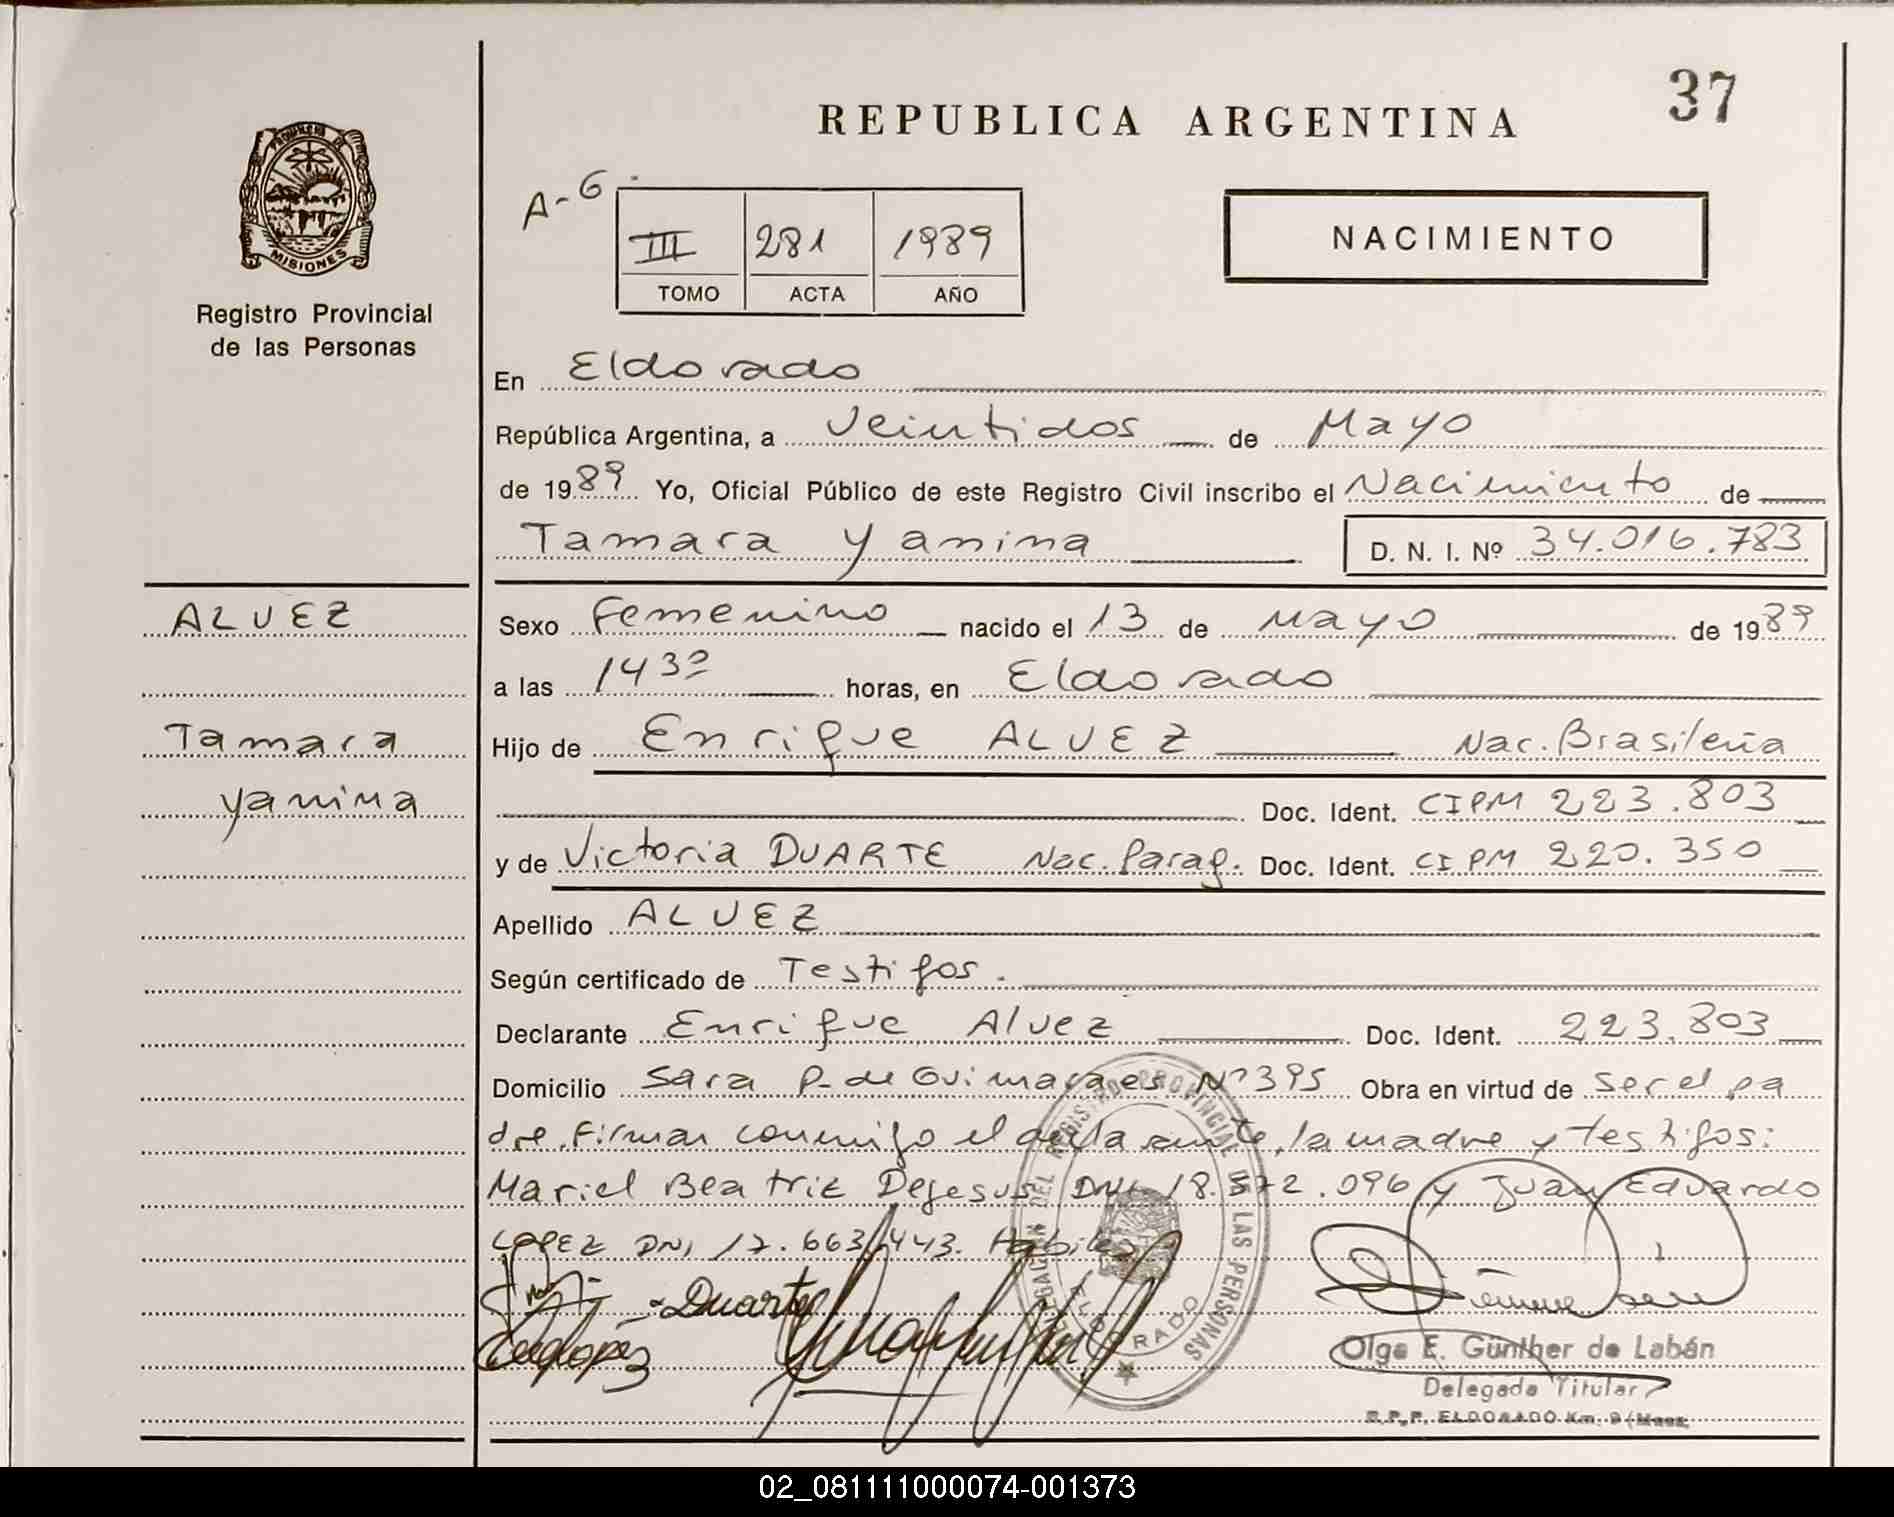 37
REPUBLICA ARGENTINA
PROVINCIA DE
MISIONES
Registro Provincial
de las Personas
A-6
III 281 1989
TOMO ACTA AÑO
NACIMIENTO
En Eldorado
República Argentina, a Veintidos de Mayo
de 1989 Yo, Oficial Público de este Registro Civil inscribo el Nacimiento de
Tamara Yanina D. N. I. Nº 34.016.783
ALVEZ
Tamara
Yanina
Sexo Femenino nacido el 13 de Mayo de 1989
a las 1430 horas, en Eldorado
Hijo de Enrique ALVEZ Nac. Brasileña
Doc. Ident. CIPM 223.803
y de Victoria DUARTE Nac. Parag. Doc. Ident. CIPM 220.350
Apellido ALVEZ
Según certificado de Testigos.
Declarante Enrique Alvez Doc. Ident. 223.803
Domicilio Sara P. de Guimaraes Nº 395 Obra en virtud de ser el pa
dre. Firman conmigo el declarante, la madre y testigos:
Mariel Beatriz Dejesus DNI 18. y Juan Eduardo
LOPEZ DNI 17.663.443. Habiles
Duarte
DELEGACION DEL REGISTRO PROVINCIAL DE LAS PERSONAS
ELDORADO
Olga E. Günther de Labán
Delegada Titular
R.P.P. ELDORADO Km. 9 (Mnes.
02_081111000074-001373